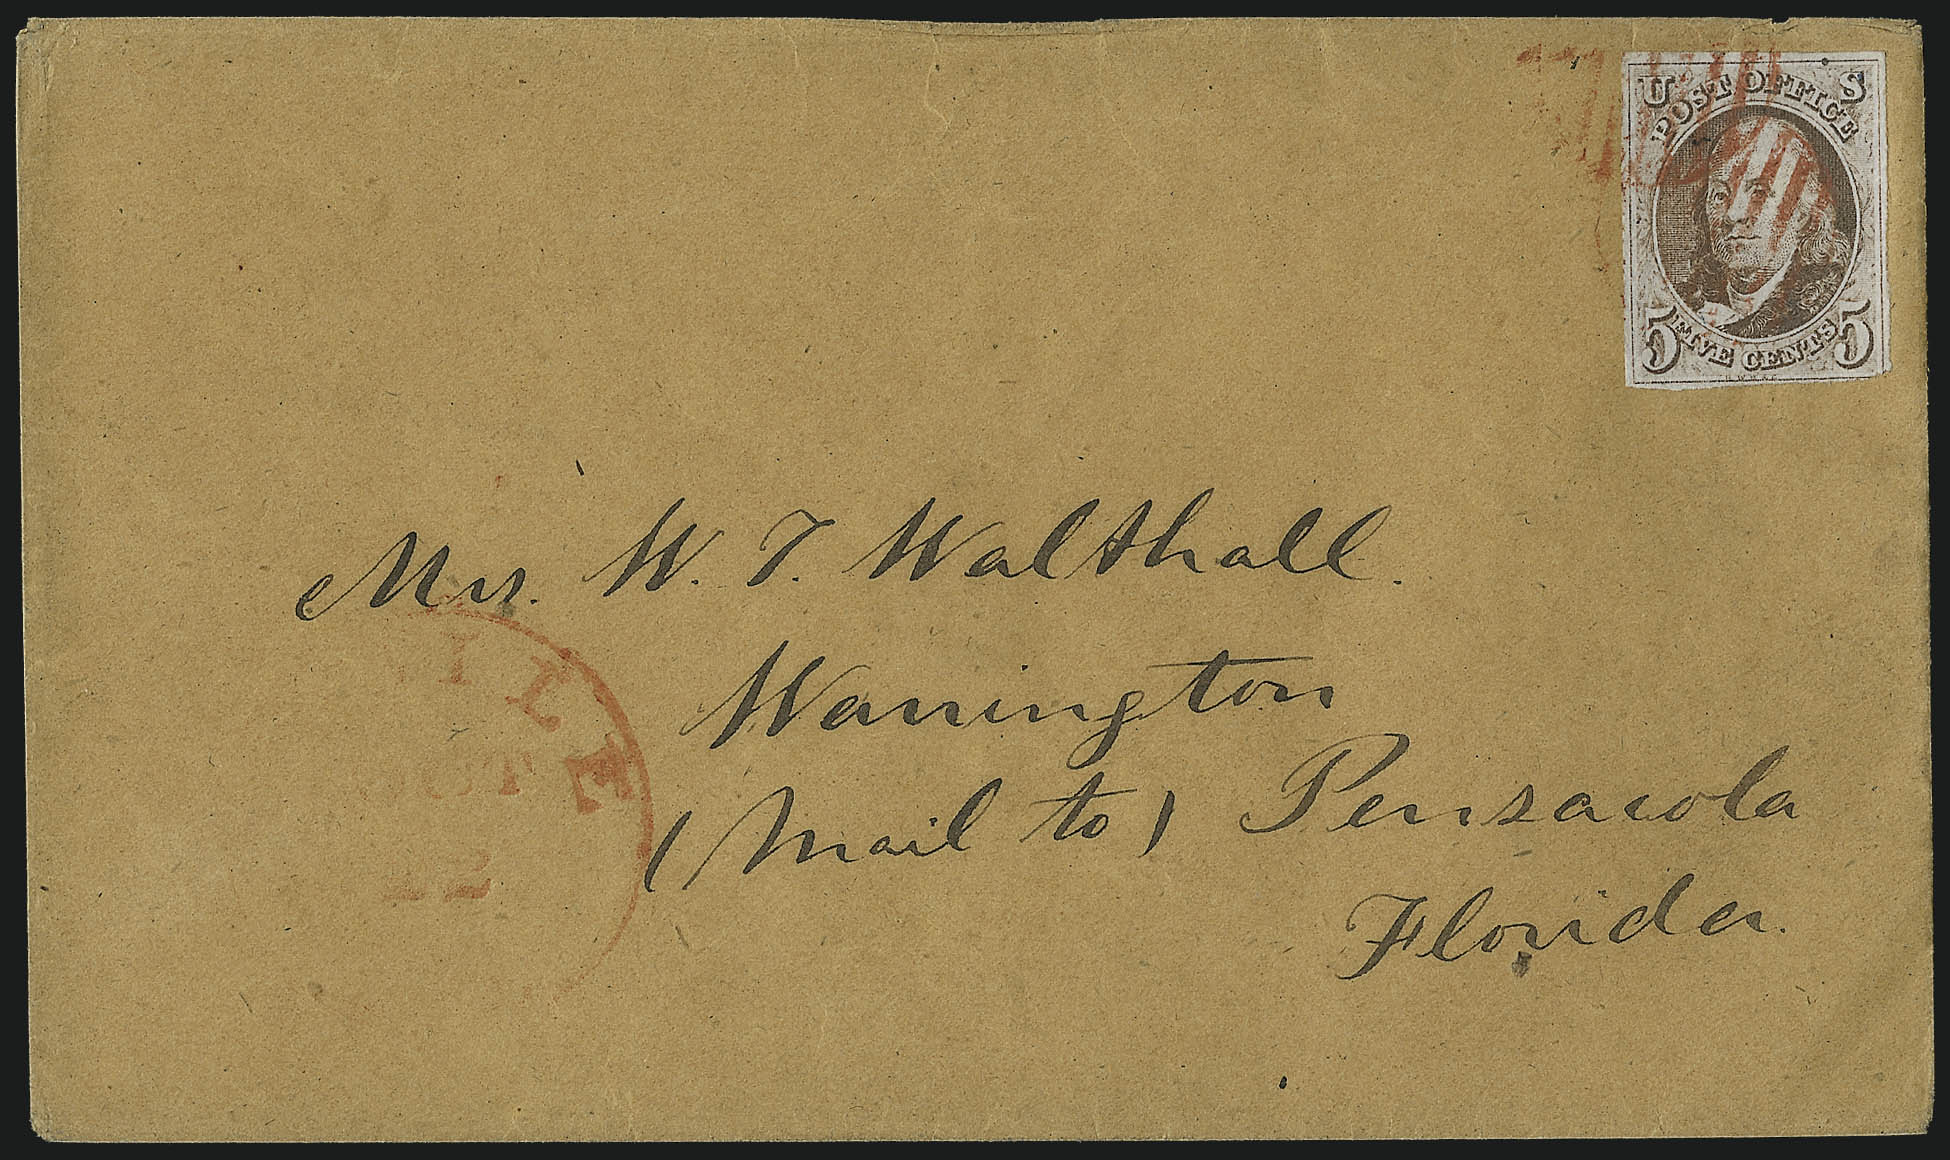 U S
POST OFFICE
5 FIVE CENTS 5
Mrs. W. T. Walthall.
Warrington
(Mail to) Pensacola
Florida.
ILE
OCT